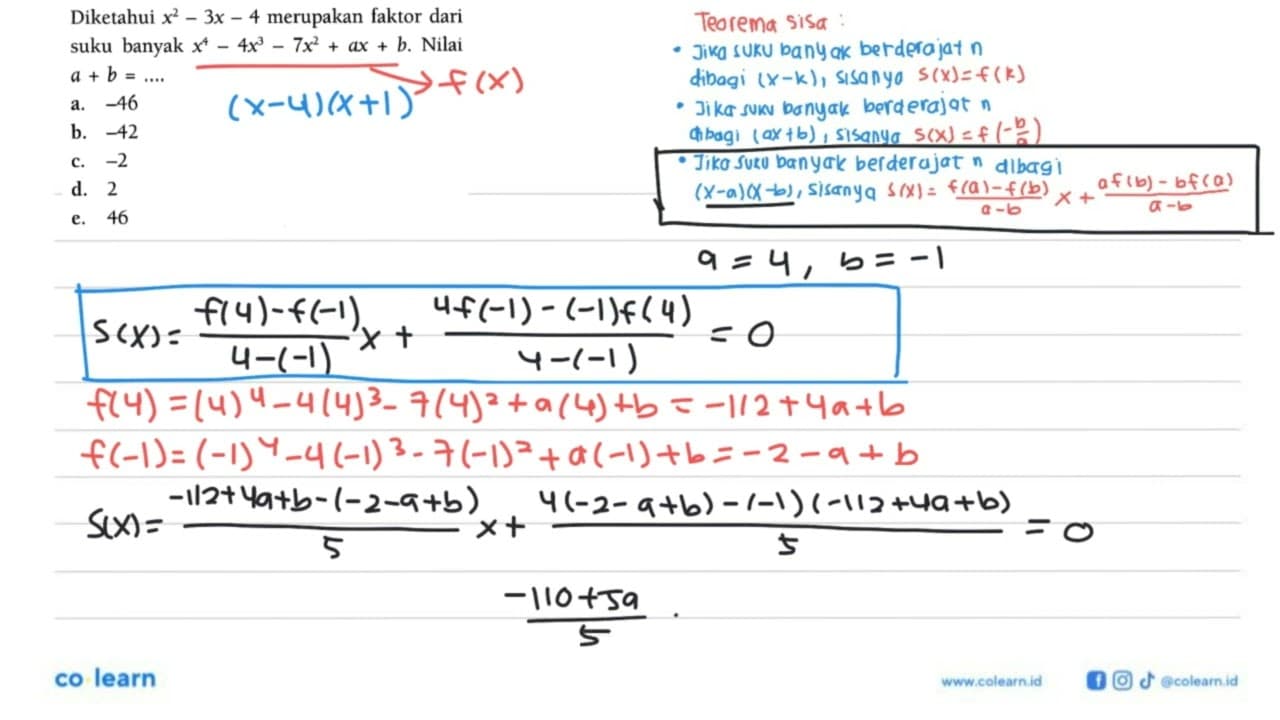 Diketahui x² – 3x – 4 merupakan faktor dari
suku banyak x⁴ – 4x³ – 7x² + ax + b. Nilai
a + b = ....
→ f(x)
(x-4)(x+1)
a. –46
b. –42
c. –2
d. 2
e. 46
Teorema sisa :
• Jika suku banyak berderajat n
dibagi (x-k), sisanya s(x)=f(k)
• Jika suku banyak berderajat n
dibagi (ax+b), sisanya s(x) = f(-b/a)
• Jika suku banyak berderajat n dibagi
(x-a)(x-b), sisanya s(x) = (f(a)-f(b))/(a-b) x + (af(b)-bf(a))/(a-b)
a = 4, b = -1
S(x) = (f(4)-f(-1))/(4-(-1)) x + (4f(-1)-(-1)f(4))/(4-(-1)) = 0
f(4) = (4)⁴ - 4(4)³ - 7(4)² + a(4) + b = -112 + 4a + b
f(-1) = (-1)⁴ - 4(-1)³ - 7(-1)² + a(-1) + b = -2 - a + b
S(x) = (-112+4a+b-(-2-a+b))/5 x + (4(-2-a+b)-(-1)(-112+4a+b))/5 = 0
(-110+5a)/5 .
co learn
www.colearn.id
@colearn.id